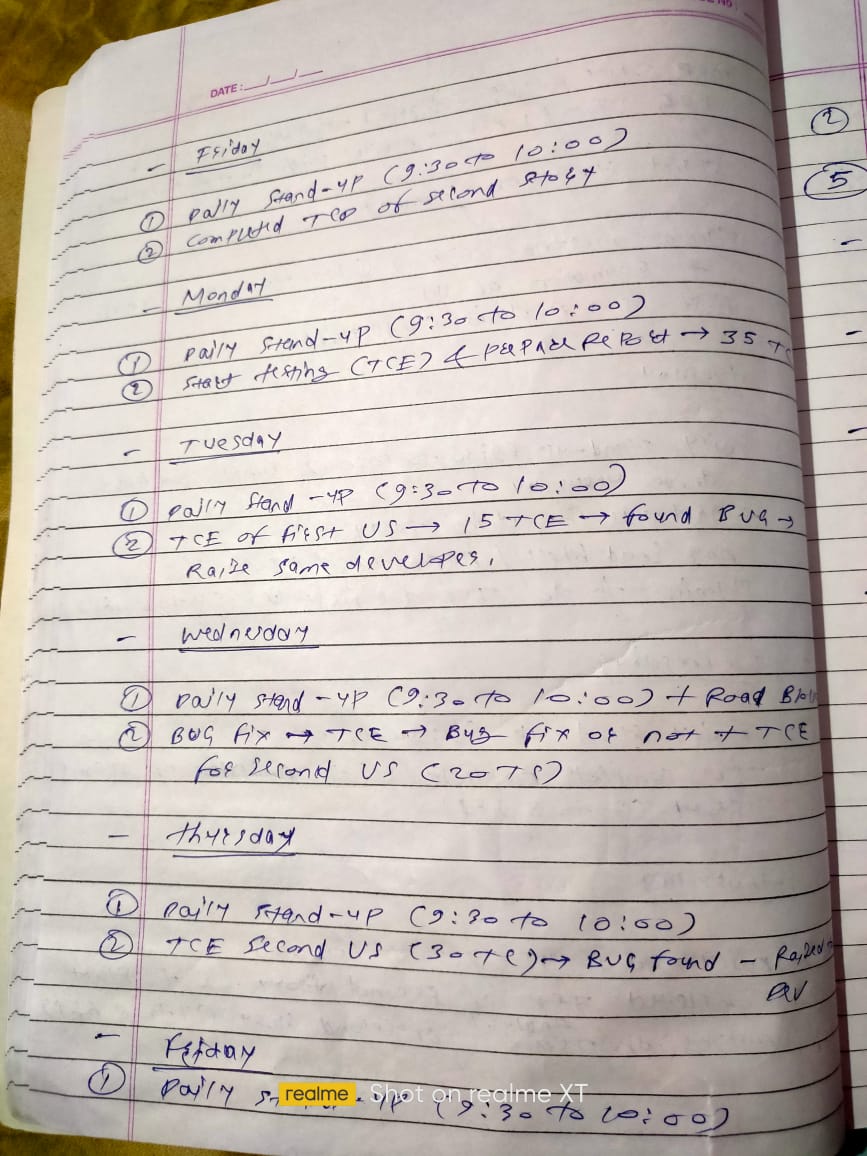 DATE: __/__/__
- Friday
① Daily Stand-up (9:30 to 10:00)
② Completed TCD of second story
- Monday
① Daily Stand-up (9:30 to 10:00)
② Start testing (TCE) & prepare Report → 35 TC
- Tuesday
① Daily Stand-up (9:30 to 10:00)
② TCE of first US → 15 TCE → found BUG →
Raise same developer.
- Wednesday
① Daily Stand-up (9:30 to 10:00) + Road Block
② BUG fix → TCE → Bug fix or not + TCE
for second US (20 TC)
- Thursday
① Daily Stand-up (9:30 to 10:00)
② TCE Second US (30 TC) → BUG found - Raised
- Friday
① Daily Stand-up (9:30 to 10:00)
realme Shot on realme XT
②
⑤